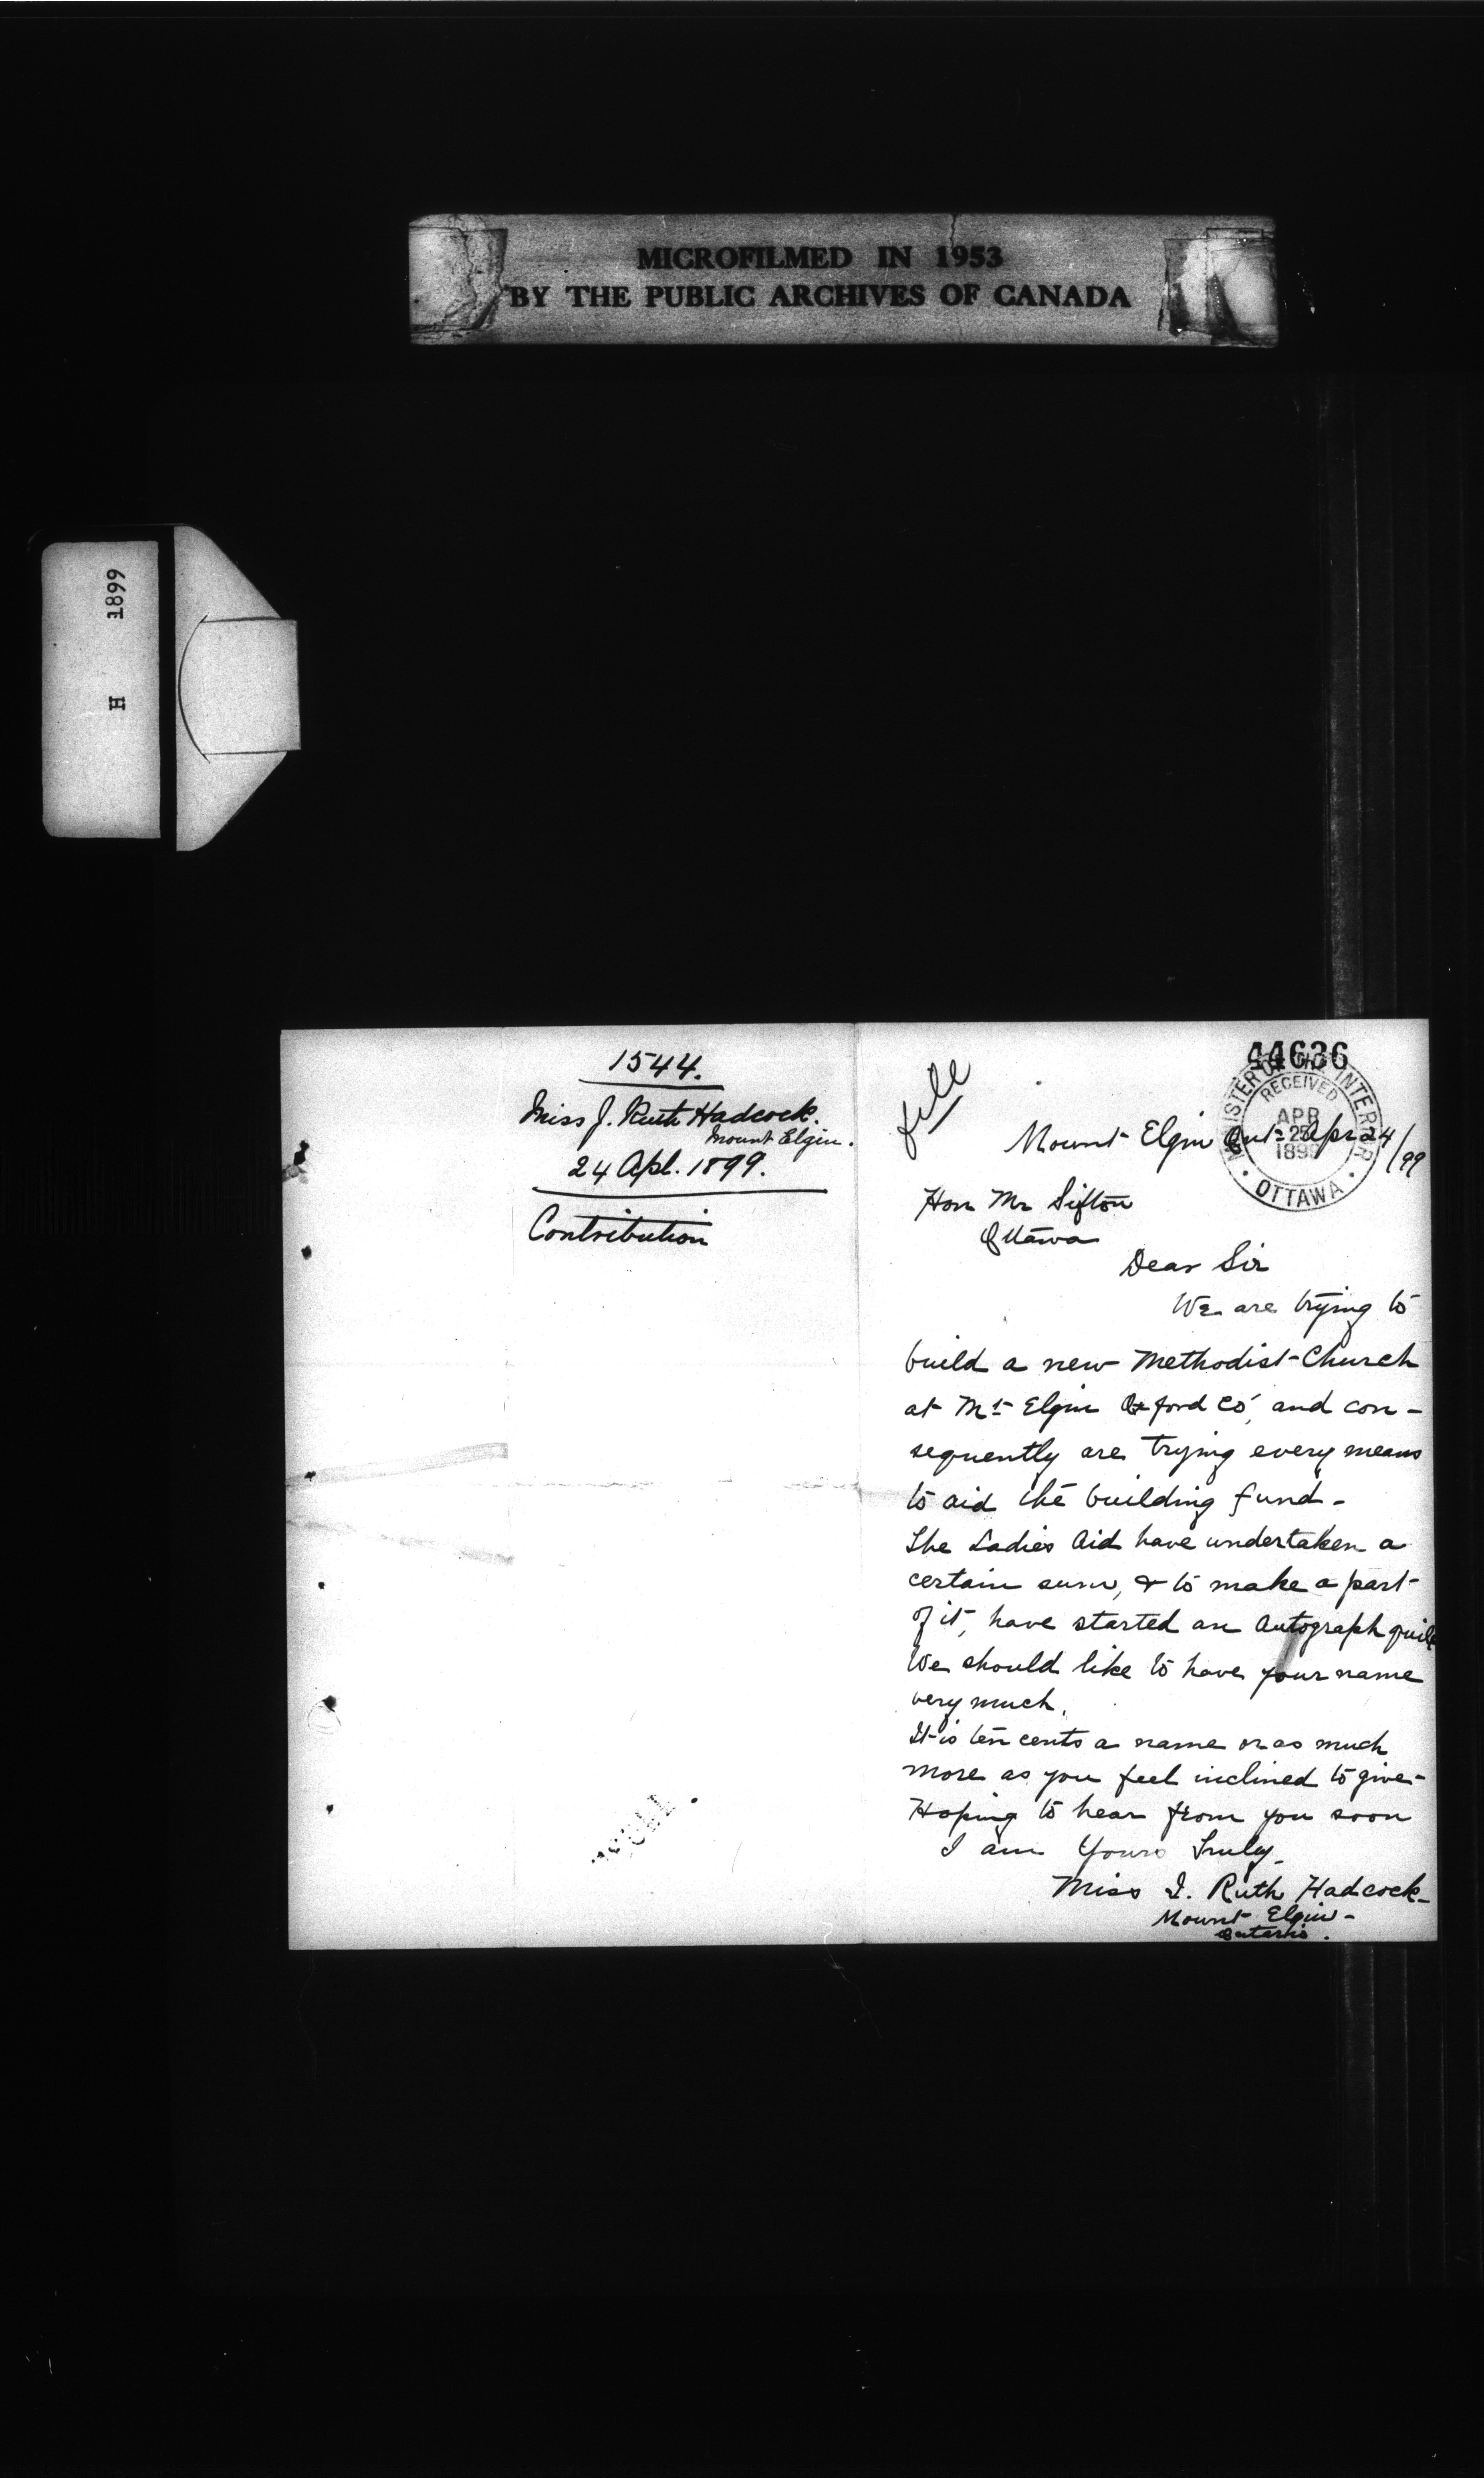 MICROFILMED IN 1953
BY THE PUBLIC ARCHIVES OF CANADA
H 1899
1544.
Miss J. Ruth Hadcock.
Mount Elgin.
24 Apl. 1899.
Contribution
file
44636
MINISTER OF THE INTERIOR
RECEIVED
APR
25
1899
OTTAWA
Mount Elgin Ont Apr 24/99
Hon Mr Sifton
Ottawa
Dear Sir
We are trying to
build a new Methodist Church
at Mt Elgin Oxford Co, and con-
sequently are trying every means
to aid the building fund -
The Ladies Aid have undertaken a
certain sum, & to make a part
of it, have started an Autograph quilt
We should like to have your name
very much.
It is ten cents a name or as much
more as you feel inclined to give -
Hoping to hear from you soon
I am Yours Truly -
Miss I. Ruth Hadcock -
Mount Elgin -
Ontario.